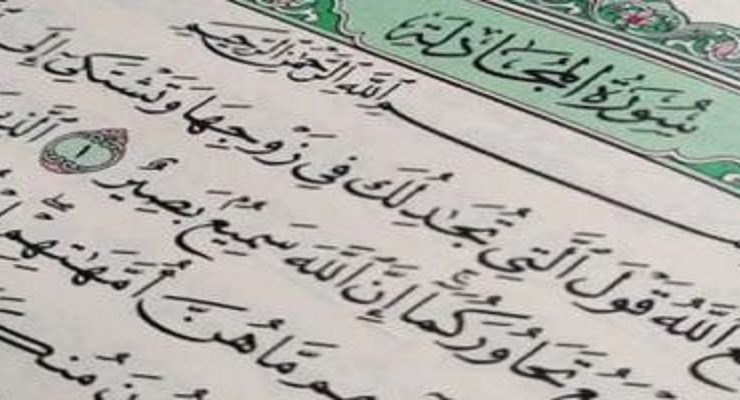 سُورَةُ المُجَادلَة
اللَّهِ الرَّحْمَٰنِ الرَّحِيمِ
اللَّهُ قَوْلَ ٱلَّتِي تُجَٰدِلُكَ فِي زَوْجِهَا وَتَشْتَكِيٓ إِلَى
تَحَاوُرَكُمَآ إِنَّ ٱللَّهَ سَمِيعُۢ بَصِيرٌ ١
مَّا هُنَّ أُمَّهَٰتِهِمْ